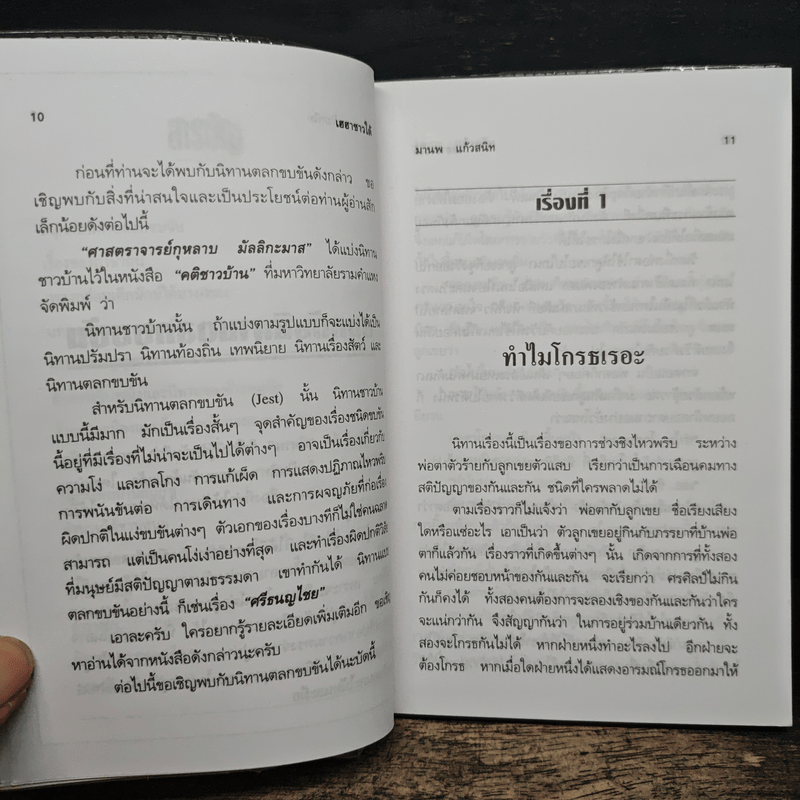 10
เฮฮาชาวใต้
ก่อนที่ท่านจะได้พบกับนิทานตลกขบขันดังกล่าว ขอ
เชิญพบกับสิ่งที่น่าสนใจและเป็นประโยชน์ต่อท่านผู้อ่านสัก
เล็กน้อยดังต่อไปนี้
“ศาสตราจารย์กุหลาบ มัลลิกะมาส” ได้แบ่งนิทาน
ชาวบ้านไว้ในหนังสือ “คติชาวบ้าน” ที่มหาวิทยาลัยรามคำแหง
จัดพิมพ์ ว่า
นิทานชาวบ้านนั้น ถ้าแบ่งตามรูปแบบก็จะแบ่งได้เป็น
นิทานปรัมปรา นิทานท้องถิ่น เทพนิยาย นิทานเรื่องสัตว์ และ
นิทานตลกขบขัน
สำหรับนิทานตลกขบขัน (Jest) นั้น นิทานชาวบ้าน
แบบนี้มีมาก มักเป็นเรื่องสั้นๆ จุดสำคัญของเรื่องชนิดขบขัน
นี้อยู่ที่มีเรื่องที่ไม่น่าจะเป็นไปได้ต่างๆ อาจเป็นเรื่องเกี่ยวกับ
ความโง่ และกลโกง การแก้เผ็ด การแสดงปฏิภาณไหวพริบ
การพนันขันต่อ การเดินทาง และการผจญภัยที่ก่อเรื่อง
ผิดปกติในแง่ขบขันต่างๆ ตัวเอกของเรื่องบางทีก็ไม่ใช่คนฉลาด
สามารถ แต่เป็นคนโง่เง่าอย่างที่สุด และทำเรื่องผิดปกติวิสัย
ที่มนุษย์มีสติปัญญาตามธรรมดา เขาทำกันได้ นิทานแบบ
ตลกขบขันอย่างนี้ ก็เช่นเรื่อง “ศรีธนญไชย”
เอาละครับ ใครอยากรู้รายละเอียดเพิ่มเติมอีก ขอเชิญ
หาอ่านได้จากหนังสือดังกล่าวนะครับ
ต่อไปนี้ขอเชิญพบกับนิทานตลกขบขันได้ณะบัดนี้
มานพ แก้วสนิท
11
เรื่องที่ 1
ทำไมโกรธเรอะ
นิทานเรื่องนี้เป็นเรื่องของการช่วงชิงไหวพริบ ระหว่าง
พ่อตาตัวร้ายกับลูกเขยตัวแสบ เรียกว่าเป็นการเฉือนคมทาง
สติปัญญาของกันและกัน ชนิดที่ใครพลาดไม่ได้
ตามเรื่องราวก็ไม่แจ้งว่า พ่อตากับลูกเขย ชื่อเรียงเสียง
ใดหรือแซ่อะไร เอาเป็นว่า ตัวลูกเขยอยู่กินกับภรรยาที่บ้านพ่อ
ตาก็แล้วกัน เรื่องราวที่เกิดขึ้นต่างๆ นั้น เกิดจากการที่ทั้งสอง
คนไม่ค่อยชอบหน้าของกันและกัน จะเรียกว่า ศรศิลป์ไม่กิน
กันก็คงได้ ทั้งสองคนต้องการจะลองเชิงของกันและกันว่าใคร
จะแน่กว่ากัน จึงสัญญากันว่า ในการอยู่ร่วมบ้านเดียวกัน ทั้ง
สองจะโกรธกันไม่ได้ หากฝ่ายหนึ่งทำอะไรลงไป อีกฝ่ายจะ
ต้องโกรธ หากเมื่อใดฝ่ายหนึ่งได้แสดงอารมณ์โกรธออกมาให้